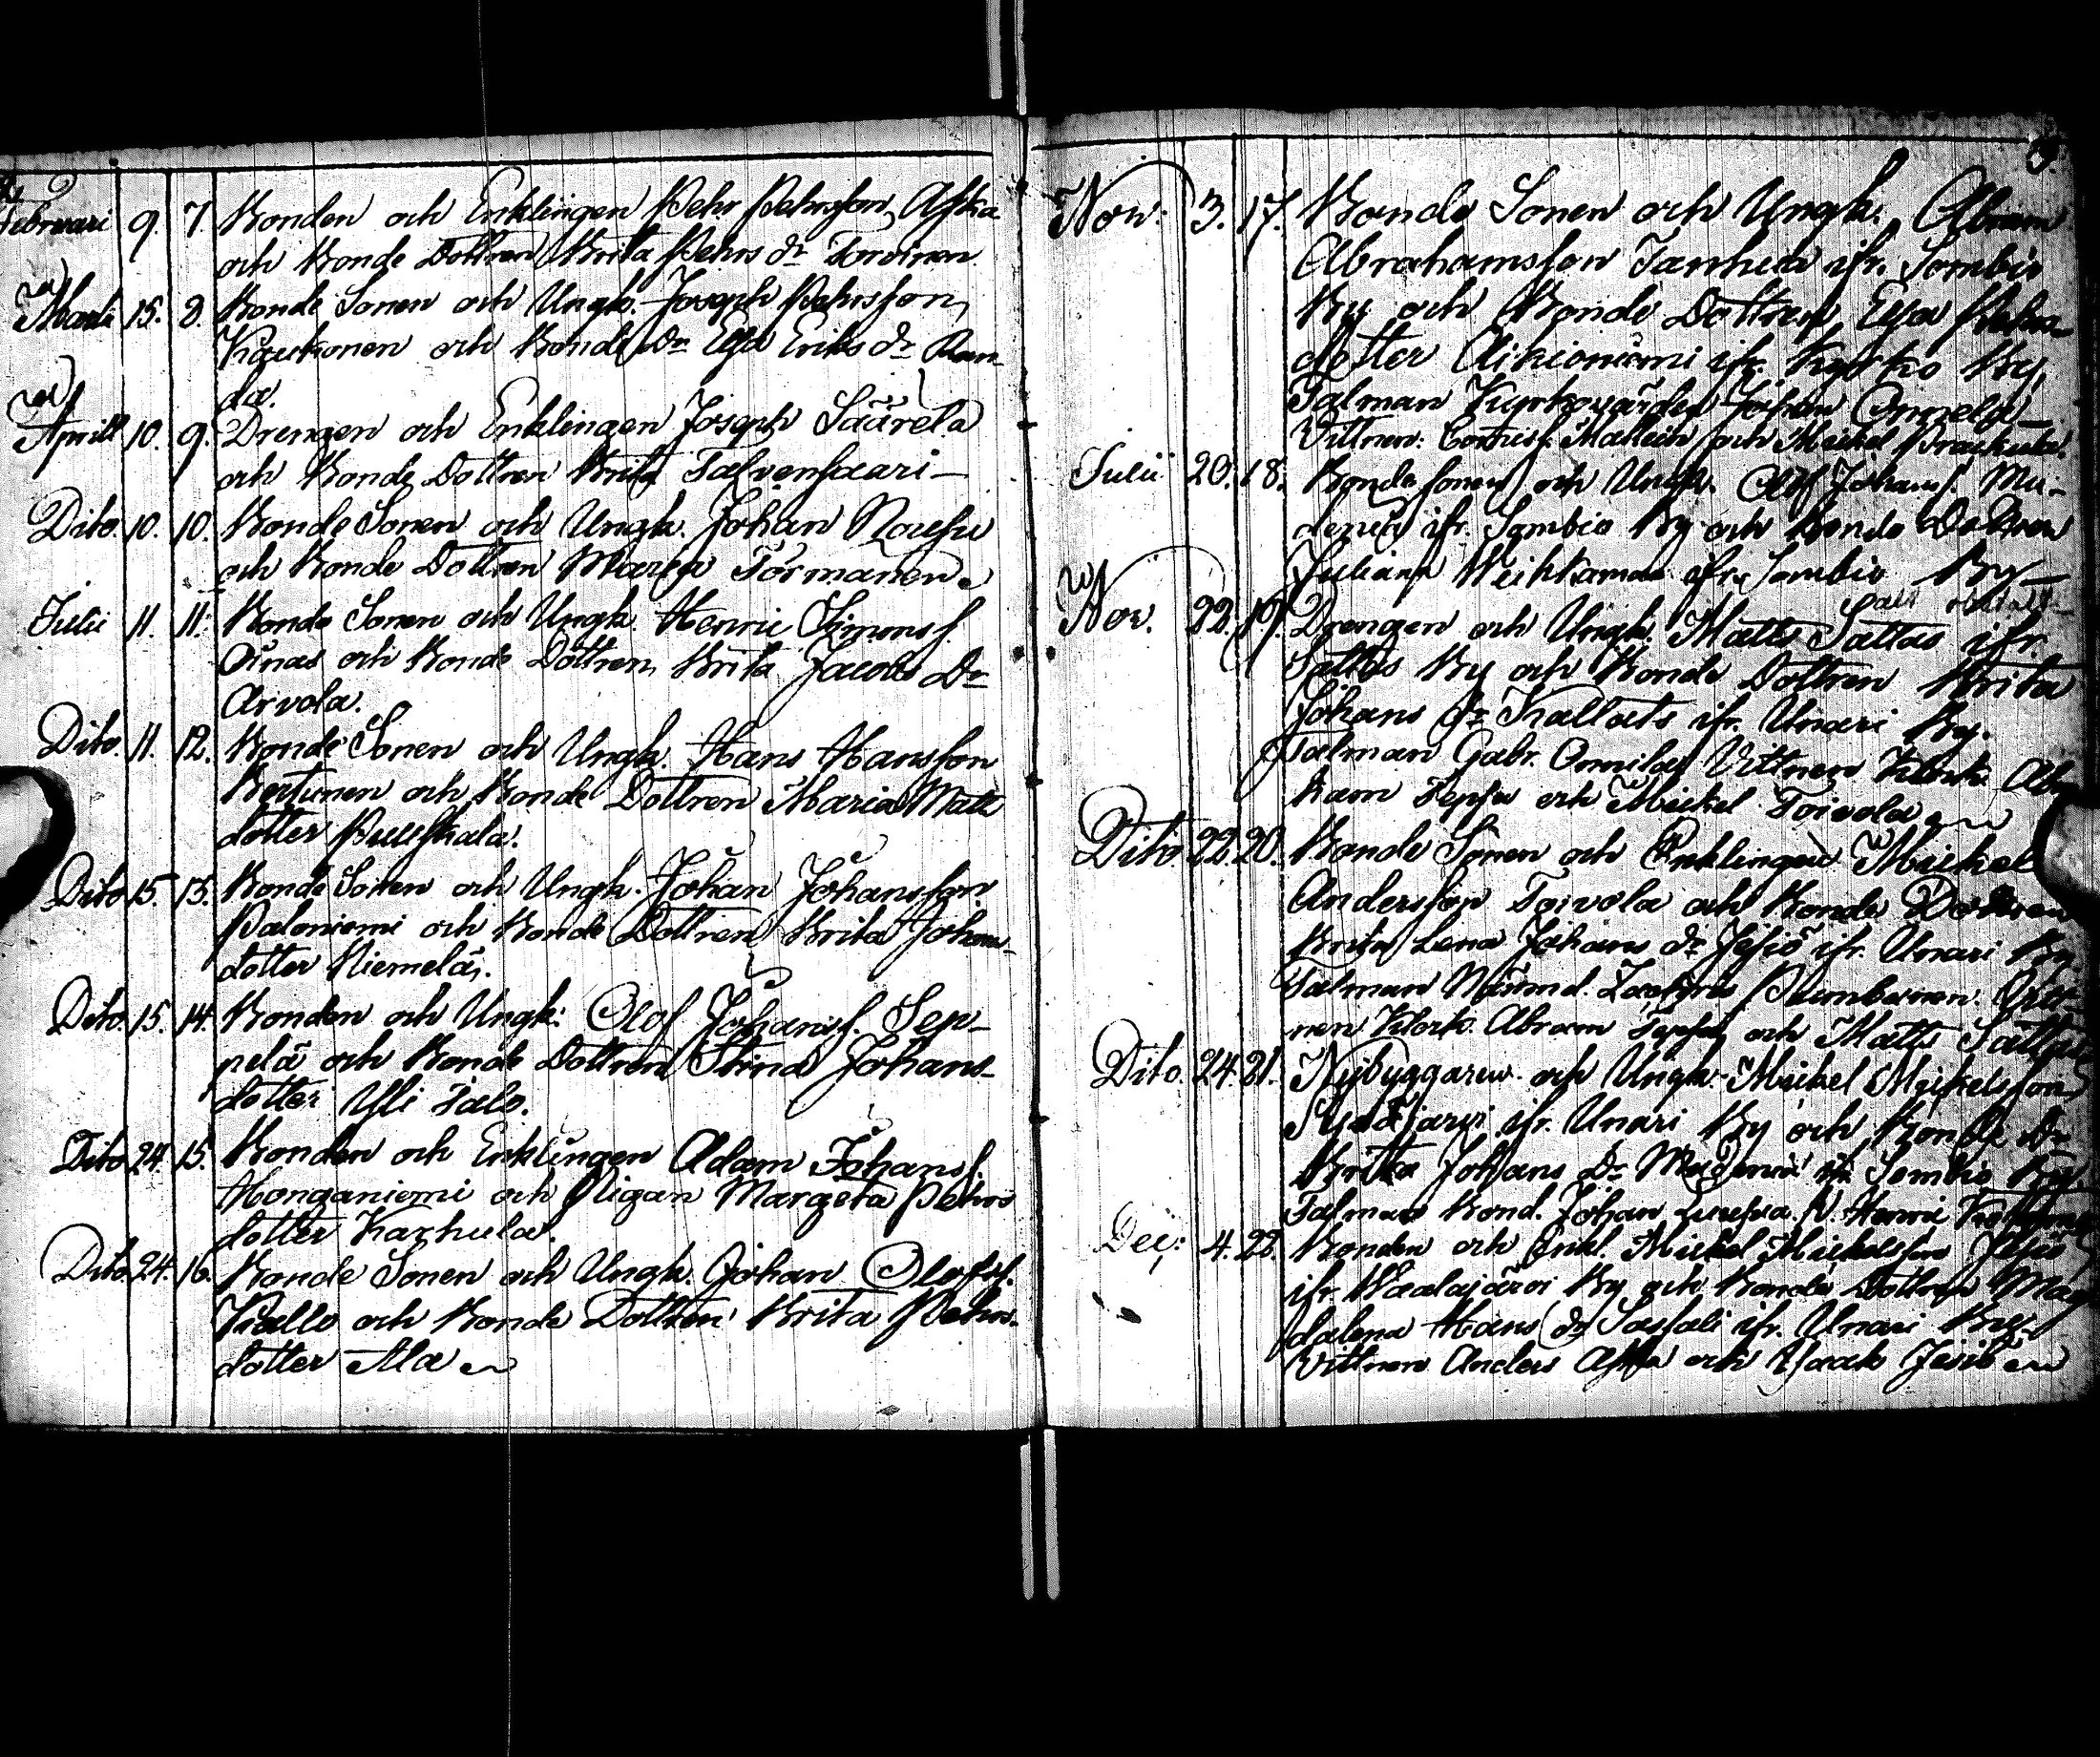 Februari 9. 7. Bonden och Enklingen Pehr Pehrsson Aska
och Bonde Dottren Brita Pehrs dr Torvinen
Martii 15. 8. Bonde Sonen och Ungk. Joseph Pehrsson
Kaukonen och Bonde Dr Elsa Eriks dr Ran-
da.
Aprill 10. 9. Drengen och Enklingen Joseph Säärela
och Bonde Dottren Brita Talvensaari
Dito. 10. 10. Bonde Sonen och Ungk. Johan Nousu
och Bonde Dottren Maria Törmänen
Julii 11. 11. Bonde Sonen och Ungk. Henric Simonss.
Oinas och Bonde Dottren Brita Jacobs Dr
Arvola.
Dito. 11. 12. Bonde Sonen och Ungk. Hans Hansson
Kertunen och Bonde Dottren Maria Matts
dotter Puljkala.
Dito 15. 13. Bonde Sonen och Ungk. Johan Johansson
Paloniemi och Bonde Dottren Brita Johans-
dotter Niemelä.
Dito. 15. 14. Bonden och Ungk. Olof Johanss. Sep-
pelä och Bonde Dottren Stina Johans-
dotter Yli Talo.
Dito 24. 15. Bonden och Enklingen Adam Johanss.
Honganiemi och Pigan Margeta Pehrs
dotter Karhula.
Dito. 24. 16. Bonde Sonen och Ungk. Johan Olofss.
Kallo och Bonde Dottren Brita Pehrs-
dotter Ala
3.
Nov: 3. 17. Bonde Sonen och Ungk. Abram
Abrahamsson Tanhua ifr. Sombio
By och Bonde Dottren Elsa Pehrs-
dotter Aikioniemi ifr. Kyrko By,
Talman Kyrkovärden Johan Onnela
Vittnen: Mattein och Mickel
Julii 20. 18. Bonde sonen och Ungk. Olof Johanss. Mu-
ifr. Sombio By och Bonde Dottren
Juliana ifr. Sombio By
Nov. 22. 19. Drengen och Ungk. Matts Sattas ifr.
Sattas By och Bonde Dottren Brita
Johans dr Kallats ifr. Unari By.
Talman Gabr. Onnila Vittnen Klock. Abra
ham Teppa och Mickel Toivola
Dito 22. 20. Bonde Sonen och Enklingen Mickel
Andersson Toivola och Bonde Dottren
Brita Lena Johans dr Jesiö ifr. Unari By.
Talman Nämnd. Zachris Pumbanen. Vitt-
nen Klock. Abram och Matts Sattas
Dito. 24. 21. Nybyggaren och Ungk. Mickel Mickelsson
Syväjärvi ifr. Unari By och Bonde Dr
Britha Johans Dr ifr. Sombio By.
Talman Bond. Johan V. Henric
Dec: 4. 22. Bonden och Enkl. Mickel Mickelsson Jesiö
ifr. Waalajärvi By och Bonde Dottren Mag
dalena Hans dr Sassali ifr. Unari By
Vittnen Anders Aska och Isaak Jesiö